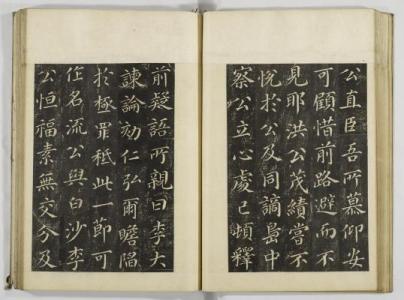 公直臣吾所慕仰安
可顧惜前路避而不
見耶洪公茂績嘗不
悅於公及同謫嵓中
察公立心處已頓釋
前疑語所親曰李大
諫論劾仁弘爾瞻陷
於極罪秪此一節可
任名流公與白沙李
公恒福素無交分及